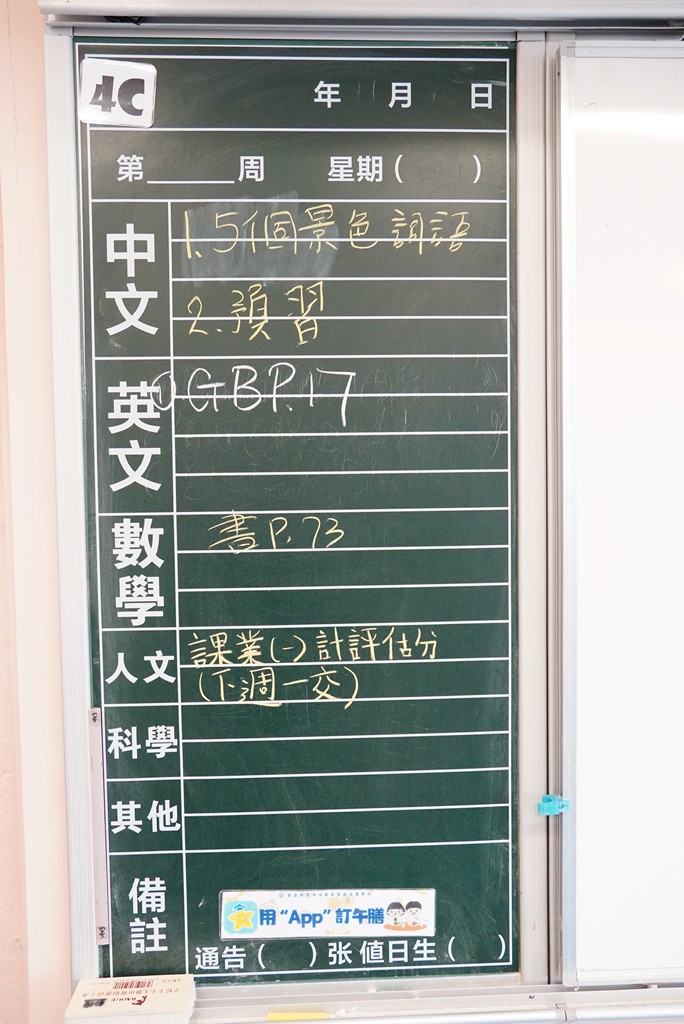 4C
年 月 日
第______周 星期( )
中文
1. 5個景色詞語
2. 預習
英文
GBP.17
數學
書P.73
人文
課業(一)計評估分
(下週一交)
科學
其他
備註
用“App”訂午膳
通告( )张 值日生( )